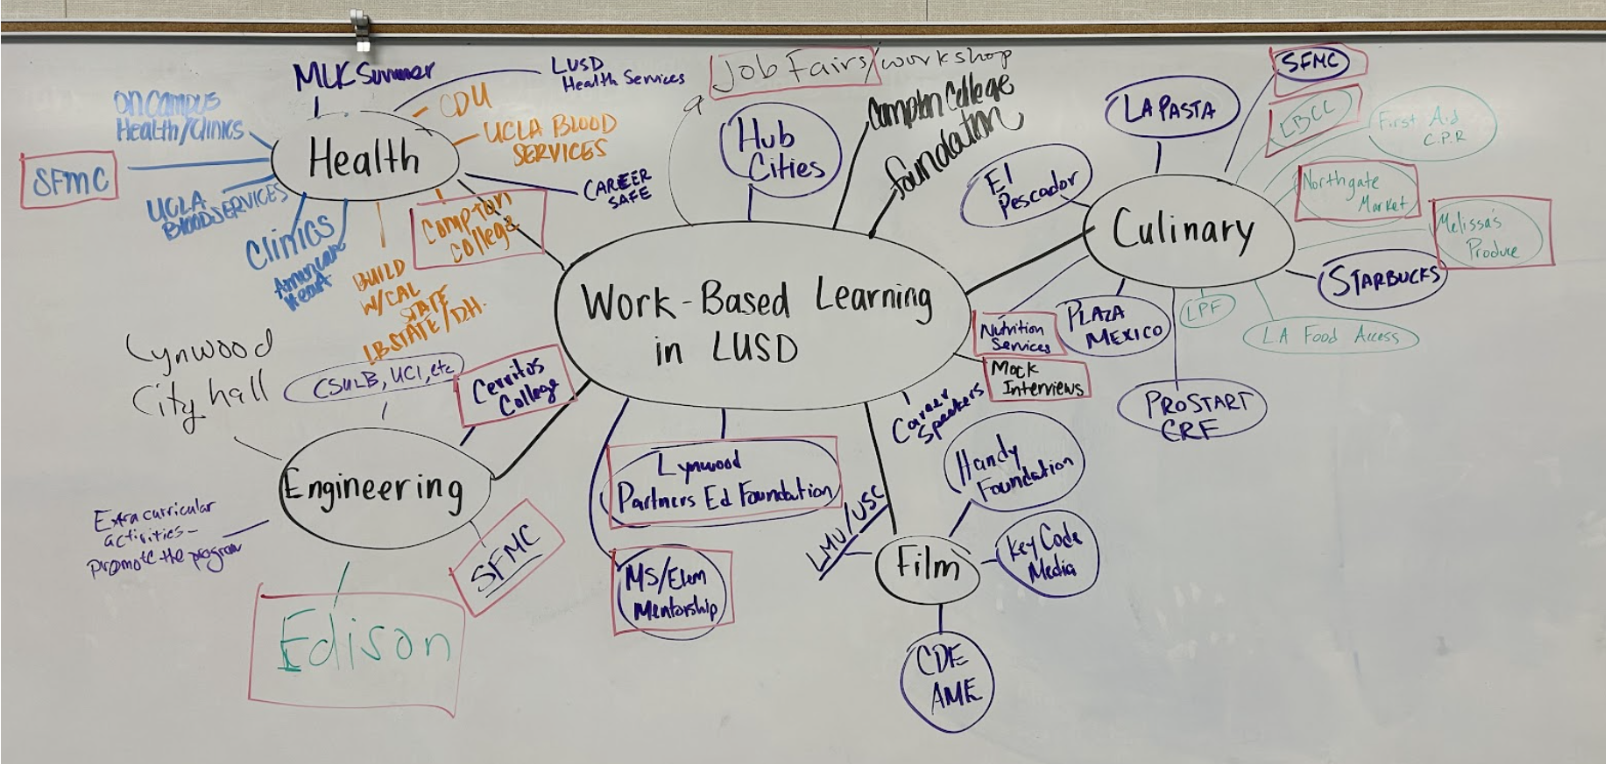 MLK Summer
LUSD
Health Services
CDU
UCLA BLOOD
SERVICES
CAREER
SAFE
On Campus
Health/Clinics
SFMC
UCLA
Blood SERVICES
Clinics
American
Heart
BUILD
W/CAL
STATE
LBSTATE/D.H.
Compton
College
Health
Job Fairs/workshop
Hub
Cities
Compton College
foundation
Work-Based Learning
in LUSD
El
Pescador
LA PASTA
SFMC
LBCC
First Aid
C.P.R
Northgate
Market
Melissa's
Produce
Culinary
STARBUCKS
Nutrition
Services
PLAZA
MEXICO
LPF
LA Food Access
PROSTART
CRF
Mock
Interviews
Career
Speakers
Lynwood
City hall
CSULB, UCI, etc
Cerritos
College
Engineering
Extracurricular
activities-
promote the program
SFMC
Edison
Lynwood
Partners Ed Foundation
MS/Elem
Mentorship
LMU/USC
Film
Handy
Foundation
Key Code
Media
CDE
AME